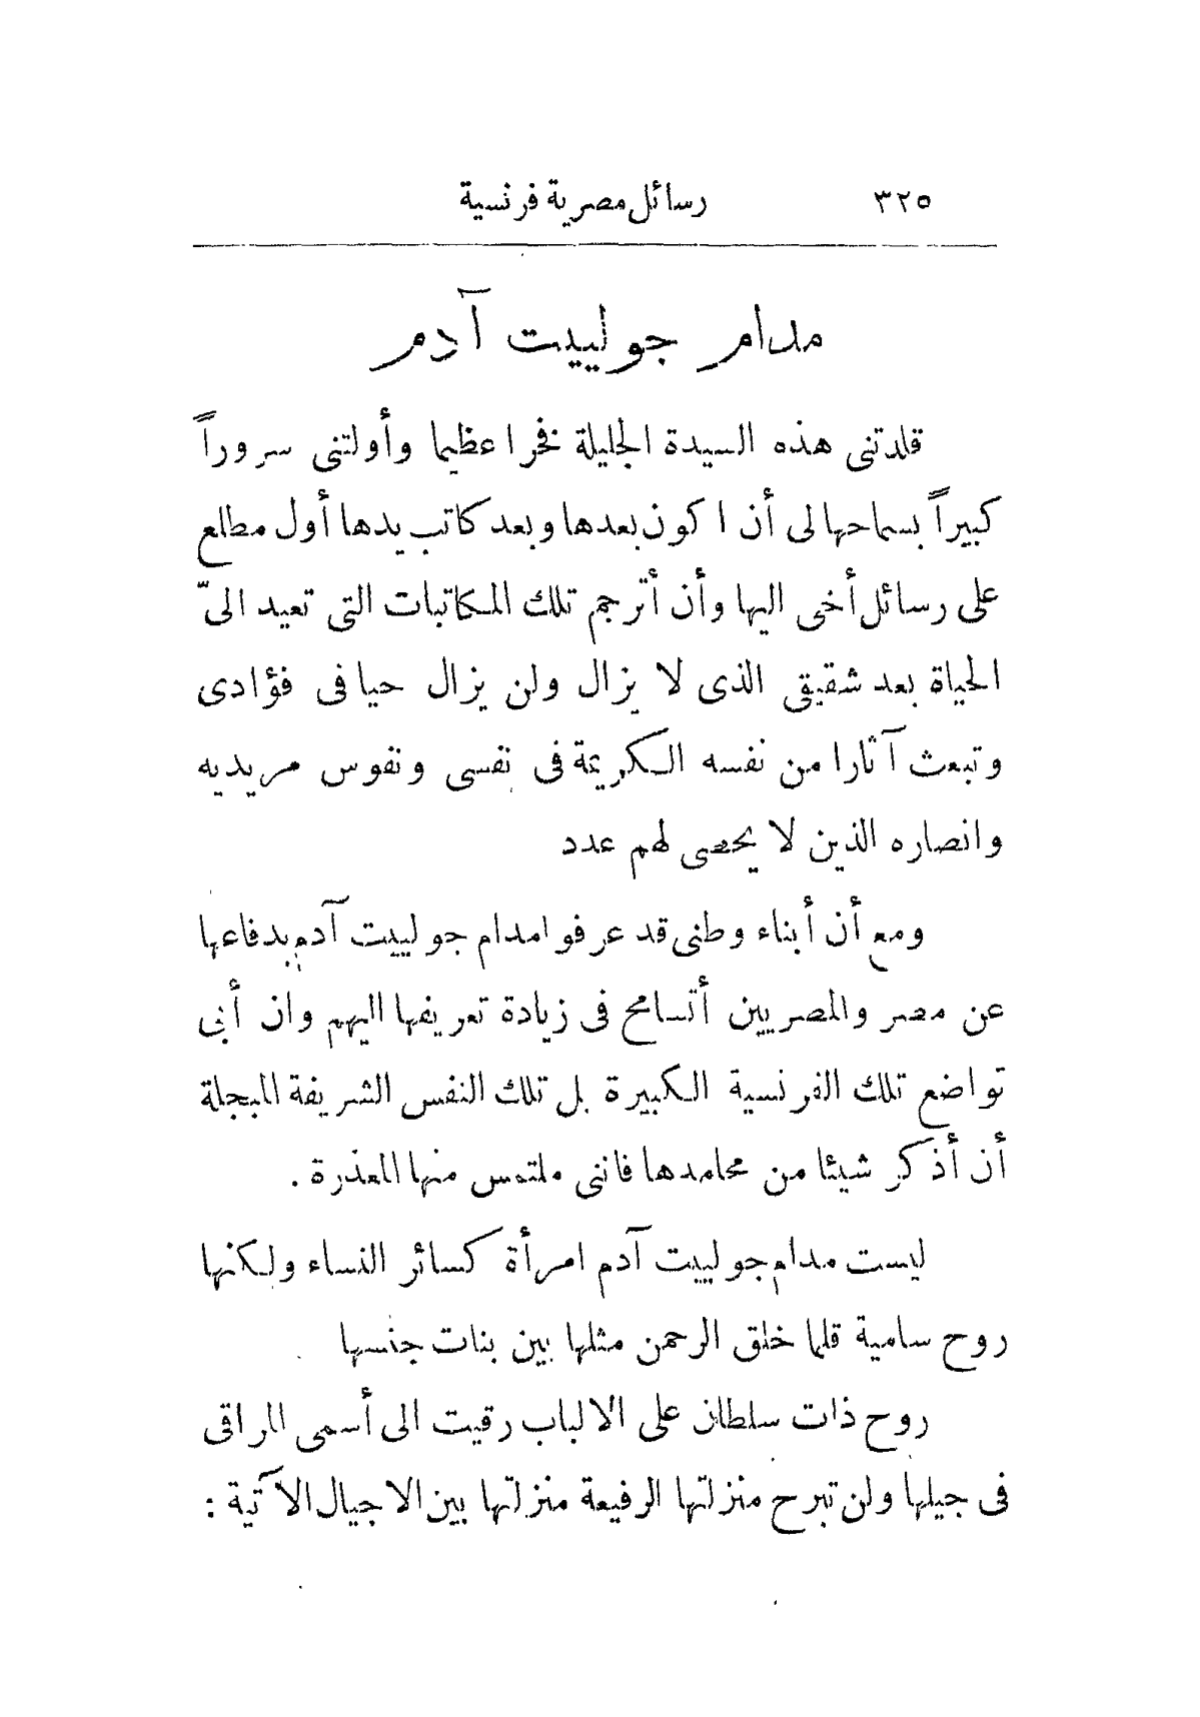 ٣٢٥ رسائل مصرية فرنسية
مدام جولييت آدم
قلدتنى هذه السيدة الجليلة فخرا عظيما وأولتنى سروراً
كبيراً بسماحها لى أن اكون بعدها وبعد كاتب يدها أول مطلع
على رسائل أخى اليها وأن أترجم تلك المكاتبات التى تعيد الىّ
الحياة بعد شقيقى الذى لا يزال ولن يزال حيا فى فؤادى
وتبعث آثارا من نفسه الكريمة فى نفسى ونفوس مريديه
وانصاره الذين لا يحصى لهم عدد
ومع أن أبناء وطنى قد عرفوا مدام جولييت آدم بدفاعها
عن مصر والمصريين أتسامح فى زيادة تعريفها اليهم وان أبى
تواضع تلك الفرنسية الكبيرة بل تلك النفس الشريفة المبجلة
أن أذكر شيئا من محامدها فاننى ملتمس منها المعذرة .
ليست مدام جولييت آدم امرأة كسائر النساء ولكنها
روح سامية قلما خلق الرحمن مثلها بين بنات جنسها
روح ذات سلطان على الالباب رقيت الى أسمى المراقى
فى جيلها ولن تبرح منزلتها الرفيعة منزلتها بين الاجيال الآتية :